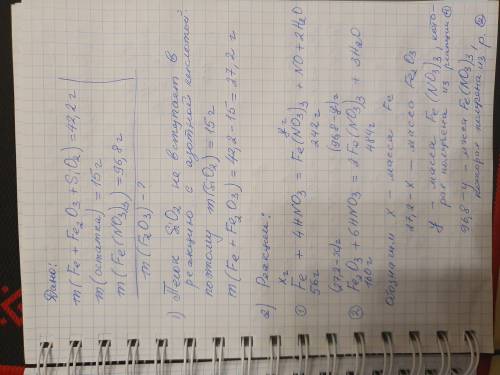 Дано:
m(Fe + Fe₂O₃ + SiO₂) = 42,2 г
m(остатка) = 15 г
m(Fe(NO₃)₃) = 96,8 г
m(Fe₂O₃) - ?
1) Песок SiO₂ не вступает в
реакцию с азотной кислотой
поэтому m(SiO₂) = 15 г
m(Fe + Fe₂O₃) = 42,2 - 15 = 27,2 г
2) Реакции:
x г y г
① Fe + 4HNO₃ = Fe(NO₃)₃ + NO + 2H₂O
56 г 242 г
(27,2-x) г (96,8-y) г
② Fe₂O₃ + 6HNO₃ = 2Fe(NO₃)₃ + 3H₂O
160 г 484 г
Обозначим x - масса Fe
27,2 - x - масса Fe₂O₃
y - масса Fe(NO₃)₃, кото-
рая получена из реакции ①
96,8 - y - масса Fe(NO₃)₃,
которая получена из р. ②